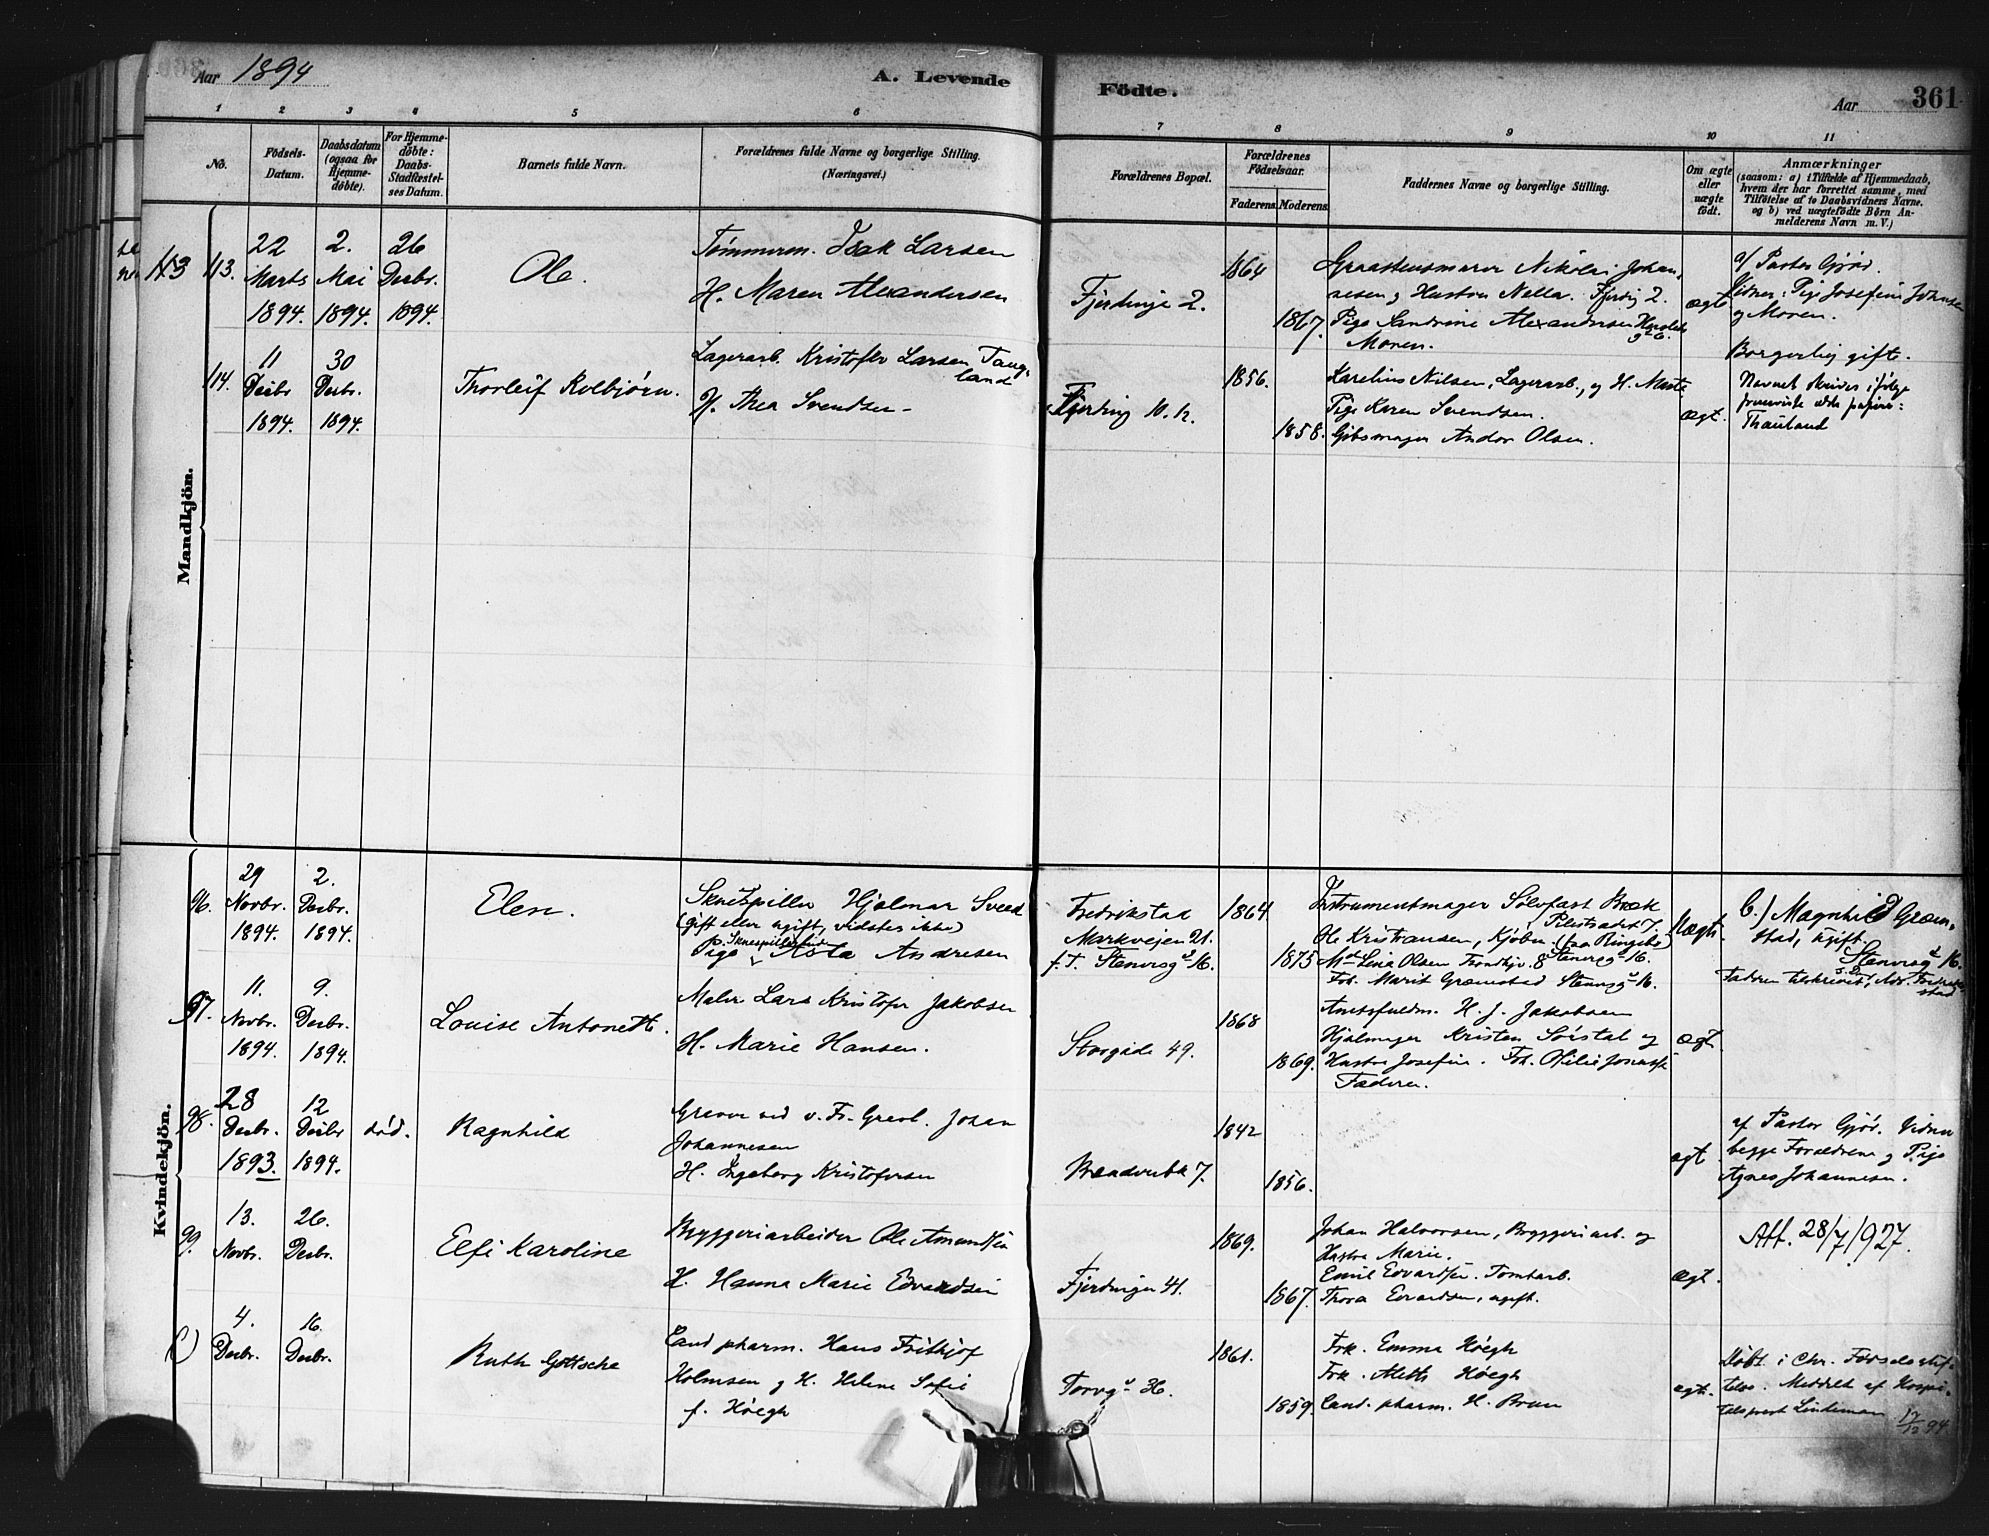 Aar 1894
A. Levende
Födte.
Aar
361
1 2 3 4 5 6 7 8 9 10 11
Nö.
Födsels-
Datum.
Daabsdatum
(ogsaa for
Hjemme-
döbte).
For Hjemme-
döbte:
Daabs-
Stadfæstel-
ses Datum.
Barnets fulde Navn.
Forældrenes fulde Navne og borgerlige Stilling.
(Næringsvei.)
Forældrenes Bopæl.
Forældrenes
Födselsaar.
Faderens. Moderens.
Faddernes Navne og borgerlige Stilling.
Om ægte
eller
uægte
födt.
Anmærkninger
(saasom: a) i Tilfælde af Hjemmedaab,
hvem der har forrettet samme, med
Tilföielse af to Daabsvidners Navne,
og b) ved uægtefödte Börn An-
melderens Navn m. V.)
Mandkjön.
113 113.
22
Marts
1894.
2.
Mai
1894.
26
Desbr.
1894.
Ole.
Tømmerm. Isak Larsen
H. Maren Alexandersen
Fjerdinge 2.
1864
1867.
Nikolai Johan-
nesen og Hustru Nella. Fjerdig 2.
Pige Sandrine Alexandersen
Moren.
ægte
af Pastor Gjør.
Vidner: Pige Josefine Johnsen
og Moren.
114.
11
Desbr
1894.
30
Desbr.
1894.
Thorleif Kolbjørn.
Lagerarb. Kristofer Larsen Taug-
land
H. Thea Svendsen
Fjerding 10. h.
1856.
1858.
Karelius Nilsen, Lagerarb., og H. Marte
Pige Karen Svendsen.
Gibsmager Andor Olsen.
ægt.
Borgerlig gift.
Navnet skrives ifølge
foreviste ældre papirer:
Thauland
Kvindekjön.
96.
29
Novbr.
1894.
2.
Desbr.
1894.
Elen.
Skuespiller Hjalmar Sveen
(gift eller ugift, vidstes ikke)
Pige Asta Andresen
Fredrikstad
Markvejen 21.
f. T. Stenersg 16.
1864
1875
Instrumentmager Solvfast Bræk
Pilestrædet 7.
Ole Kristiansen, Kjøbm. (fra Ringebo)
Lina Olsen Trondhjv. 8 Stenersg 16.
Frk. Marit Græmstad Stenersg 16.
Uægte
b.) Magnhild Græm-
stad, ugift.
Stenersg 16.
Faderen tilskrevet, Adr. Fredrik-
stad
97.
11.
Novbr.
1894.
9.
Desbr.
1894.
Louise Antonette.
Maler Lars Kristofer Jakobsen
H. Marie Hansen.
Storgade 49.
1868
1869.
H. J. Jakobsen
Hjulmager Kristen Sørstal og
Hustru Josefine. Frk. Otilie
Faderen.
ægt.
98.
28
Desbr.
1893.
12
Desbr
1894.
død.
Ragnhild
Graver ved v. Fr. Gravl. Johan
Johannesen
H. Ingeborg Kristofersen
7.
1842
1856.
ægt
af Pastor Gjør. Vidner
begge Forældrene og Pige
Agnes Johannesen.
99.
13.
Novbr.
26.
Desbr.
Elfi Karoline
Bryggeriarbeider Ole Amundsen
H. Hanna Marie Edvardsen
Fjerdingen 41.
1869.
1867.
Johan Halvorsen, Bryggeriarb. og
Hustru Marie.
Emil Edvardsen. Tomtarb.
Thora Edvardsen, ugift.
ægt.
Att. 28/7/927.
4.
Desbr.
16.
Desbr.
Ruth Gottsche
Cand pharm. Hans Frithjof
Holmsen og H. Helene Sofie
f. Høegh
Torvg 36.
1861.
1859.
Frk. Emma Høegh
Frk. Aleth Høegh
Cand. pharm. H. Brun
ægt.
Døbt i Chr. Fødselsstif-
telse. Meddelt af Hospi-
talsprest Lindeman 17/12 94